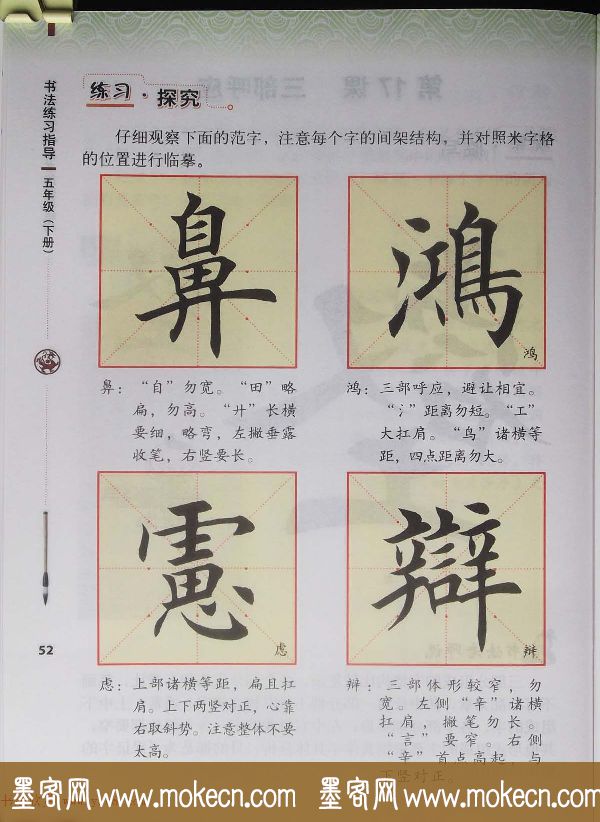 书法练习指导 五年级（下册）
练习·探究
仔细观察下面的范字，注意每个字的间架结构，并对照米字格
的位置进行临摹。
鼻
鴻
鸿
鼻：“自”勿宽。“田”略
扁，勿高。“廾”长横
要细，略弯，左撇垂露
收笔，右竖要长。
鸿：三部呼应，避让相宜。
“氵”距离勿短。“工”
大扛肩。“鸟”诸横等
距，四点距离勿大。
慮
虑
辯
辩
虑：上部诸横等距，扁且扛
肩。上下两竖对正，心靠
右取斜势。注意整体不要
太高。
辩：三部体形较窄，勿
宽。左侧“辛”诸横
扛肩，撇笔勿长。
“言”要窄。右侧
“辛”首点高起，与
下竖对正。
52
墨客网 www.mokecn.com 墨客网 www.mokecn.com